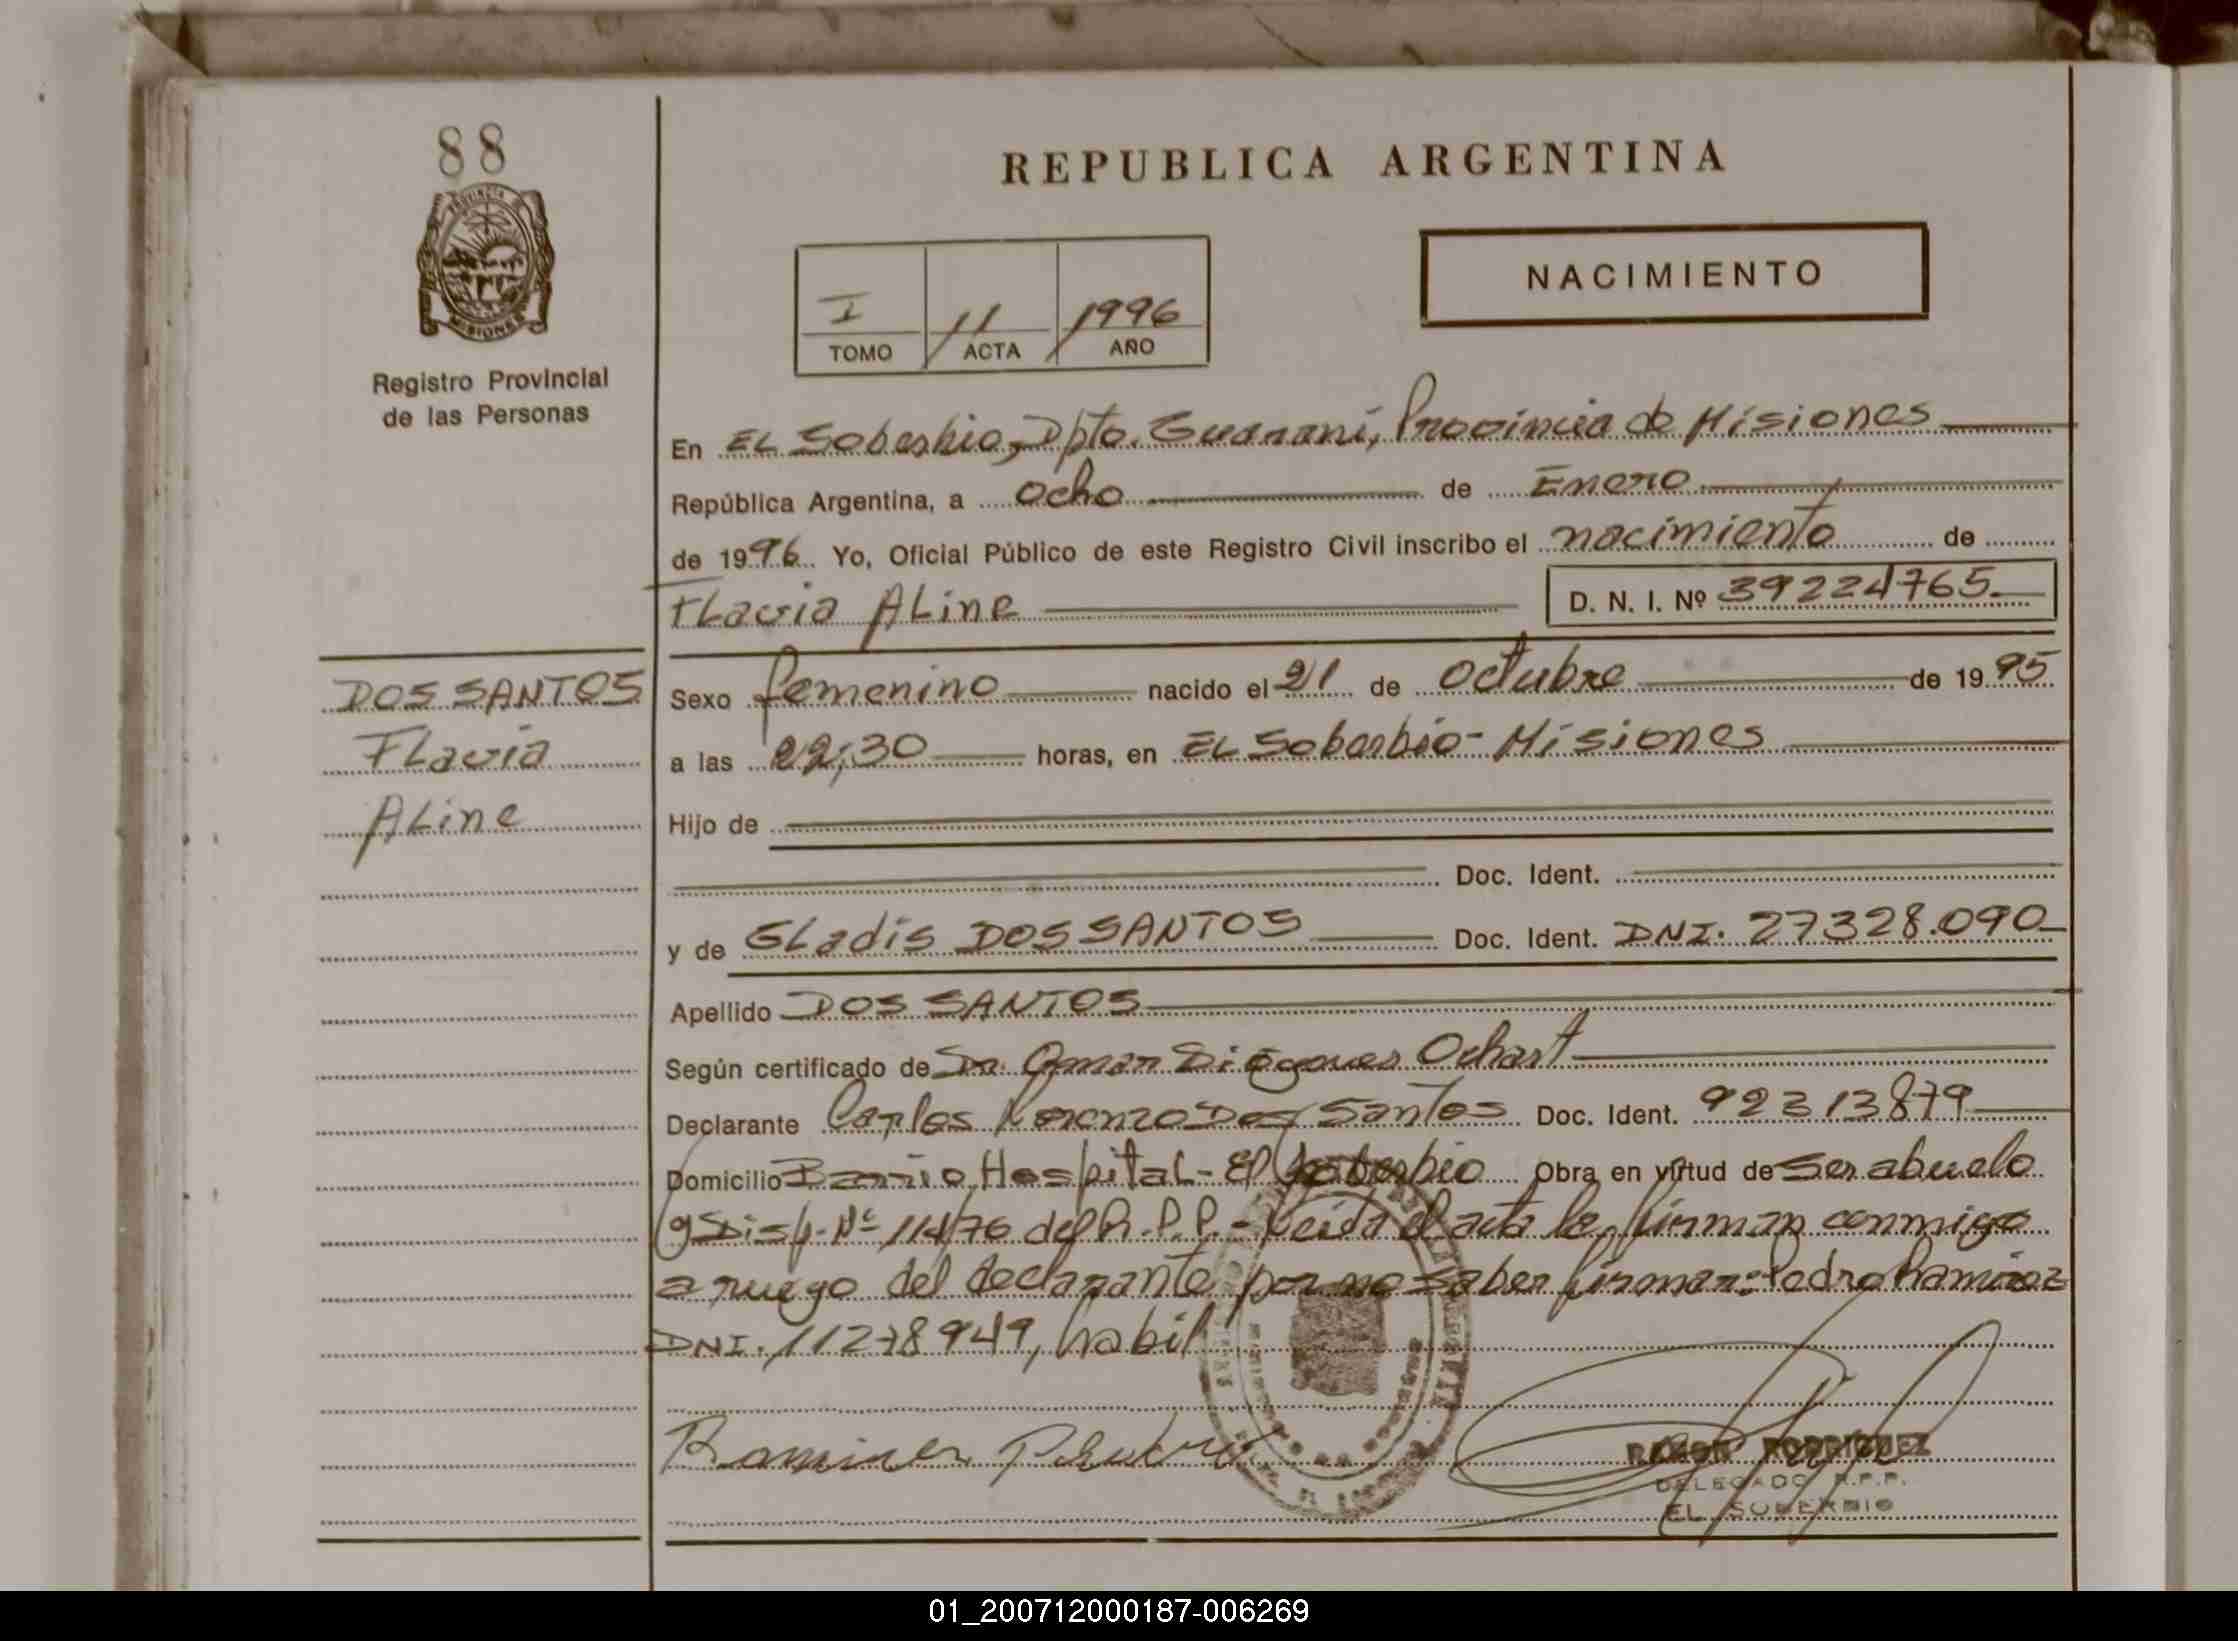 88
REPUBLICA ARGENTINA
NACIMIENTO
PROVINCIA DE
MISIONES
Registro Provincial
de las Personas
I 11 1996
TOMO ACTA AÑO
En EL Soberbio, Dpto. Guaraní, Provincia de Misiones
República Argentina, a Ocho de Enero
de 1996 Yo, Oficial Público de este Registro Civil inscribo el nacimiento de
FLavia ALine D. N. I. Nº 39224765.
DOS SANTOS
FLavia
ALine
Sexo femenino nacido el 21 de Octubre de 1995
a las 22,30 horas, en EL Soberbio - Misiones
Hijo de
Doc. Ident.
y de GLadis DOS SANTOS Doc. Ident. DNI. 27328.090
Apellido DOS SANTOS
Según certificado de Dr. Omar Ochart
Declarante Carlos Lorenzo Dos Santos Doc. Ident. 92313879
Domicilio Barrio Hospital - El Soberbio Obra en virtud de ser abuelo
Disp. Nº 114/76 del R.P.P. - Leída el acta la firman conmigo
a ruego del declarante por no saber firmar: Pedro Ramirez
DNI. 11278949, habil
Ramirez Pedro
RAMON RODRIGUEZ
DELEGADO R.P.P.
EL SOBERBIO
01_200712000187-006269